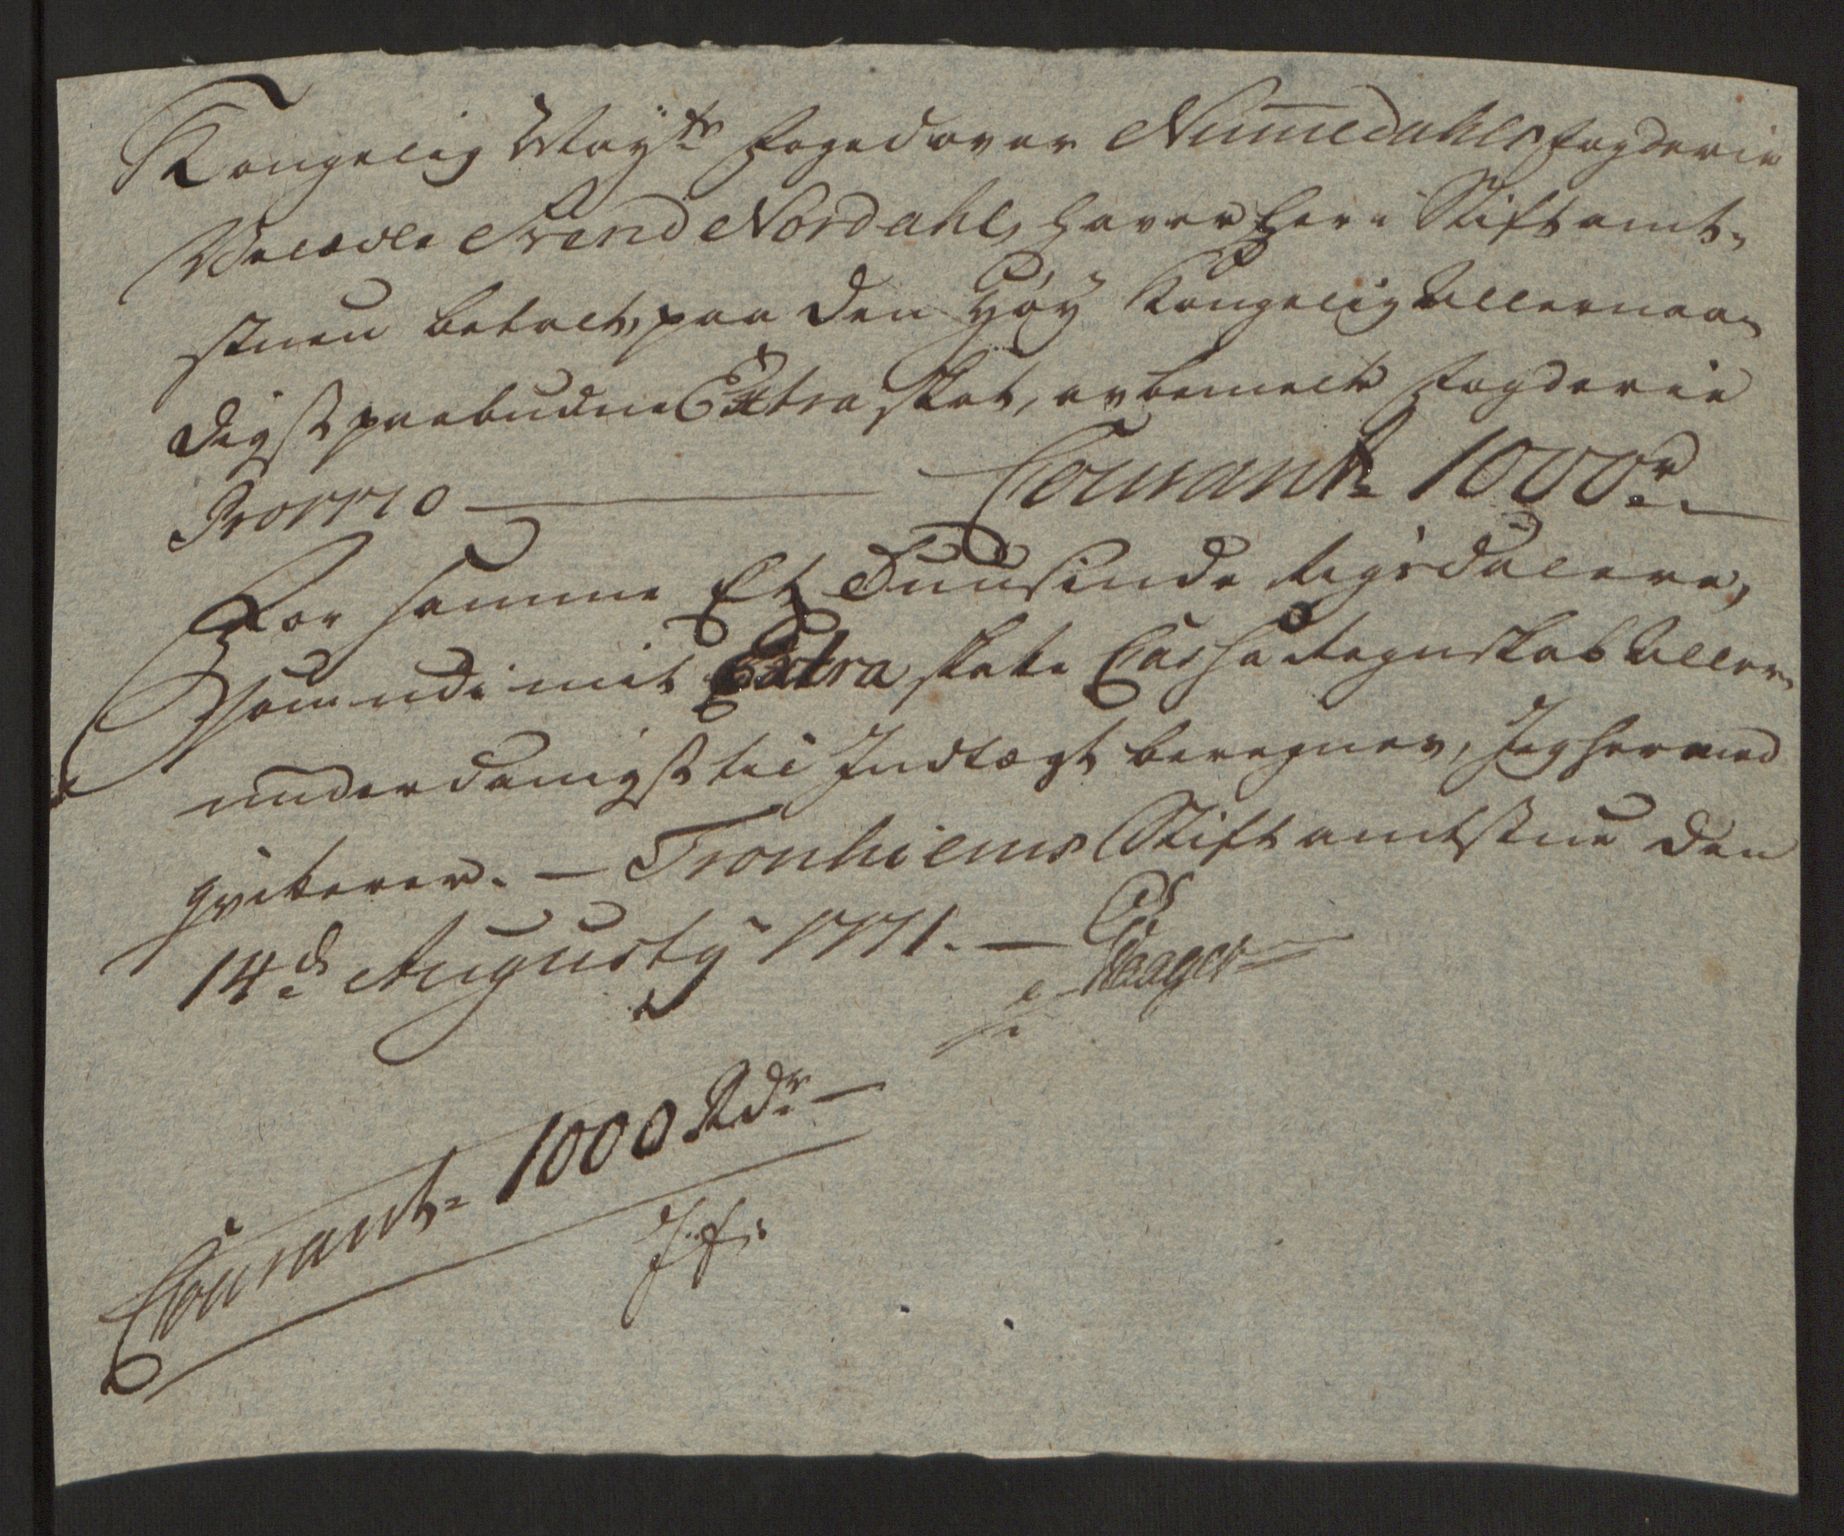 Kongelig Maÿts Foged over Nummedahls Fogderie
Velædle Svend Nordahl, haver her i Stiftamt-
stuen betalt, paa den høÿ Kongelig Allernaa-
digst paabudne Extra Skat, av bemelte Fogderie
Pro 1770 — Courant 1000 r
For samme Et Tuusinde Rigsdalere,
som udi mit Extra Skatte Cassa Regnskab Aller-
underdanigst til Indtægt beregnes, Jeg hermed
qviterer. — Tronhiems Stiftamtstue den
14de Augustÿ 1771. —
Hager
Courant 1000 Rdr —